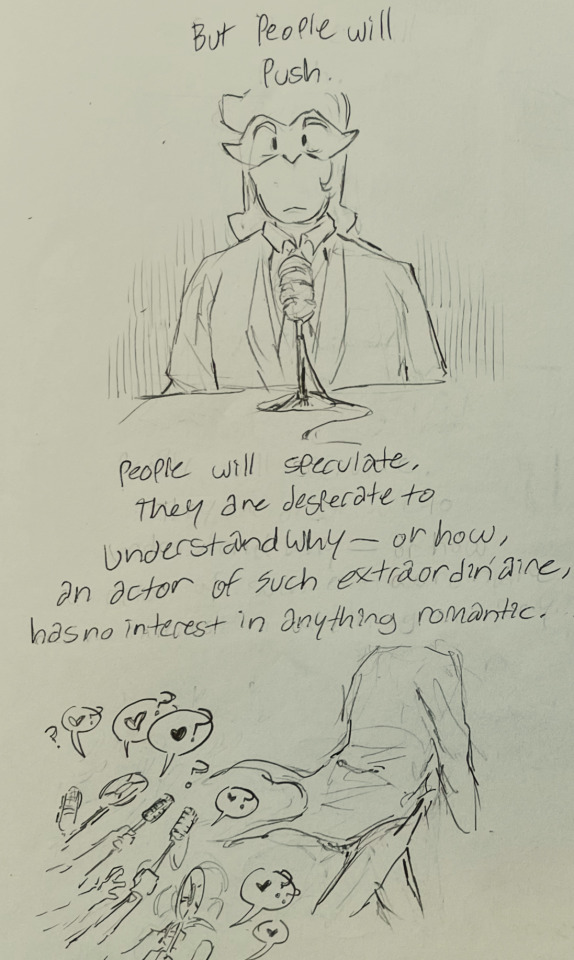 But People will
Push.
People will speculate,
they are desperate to
understand why — or how,
an actor of such extraordin'aire,
has no interest in anything romantic.
?
?
?
?
?
?
?
?